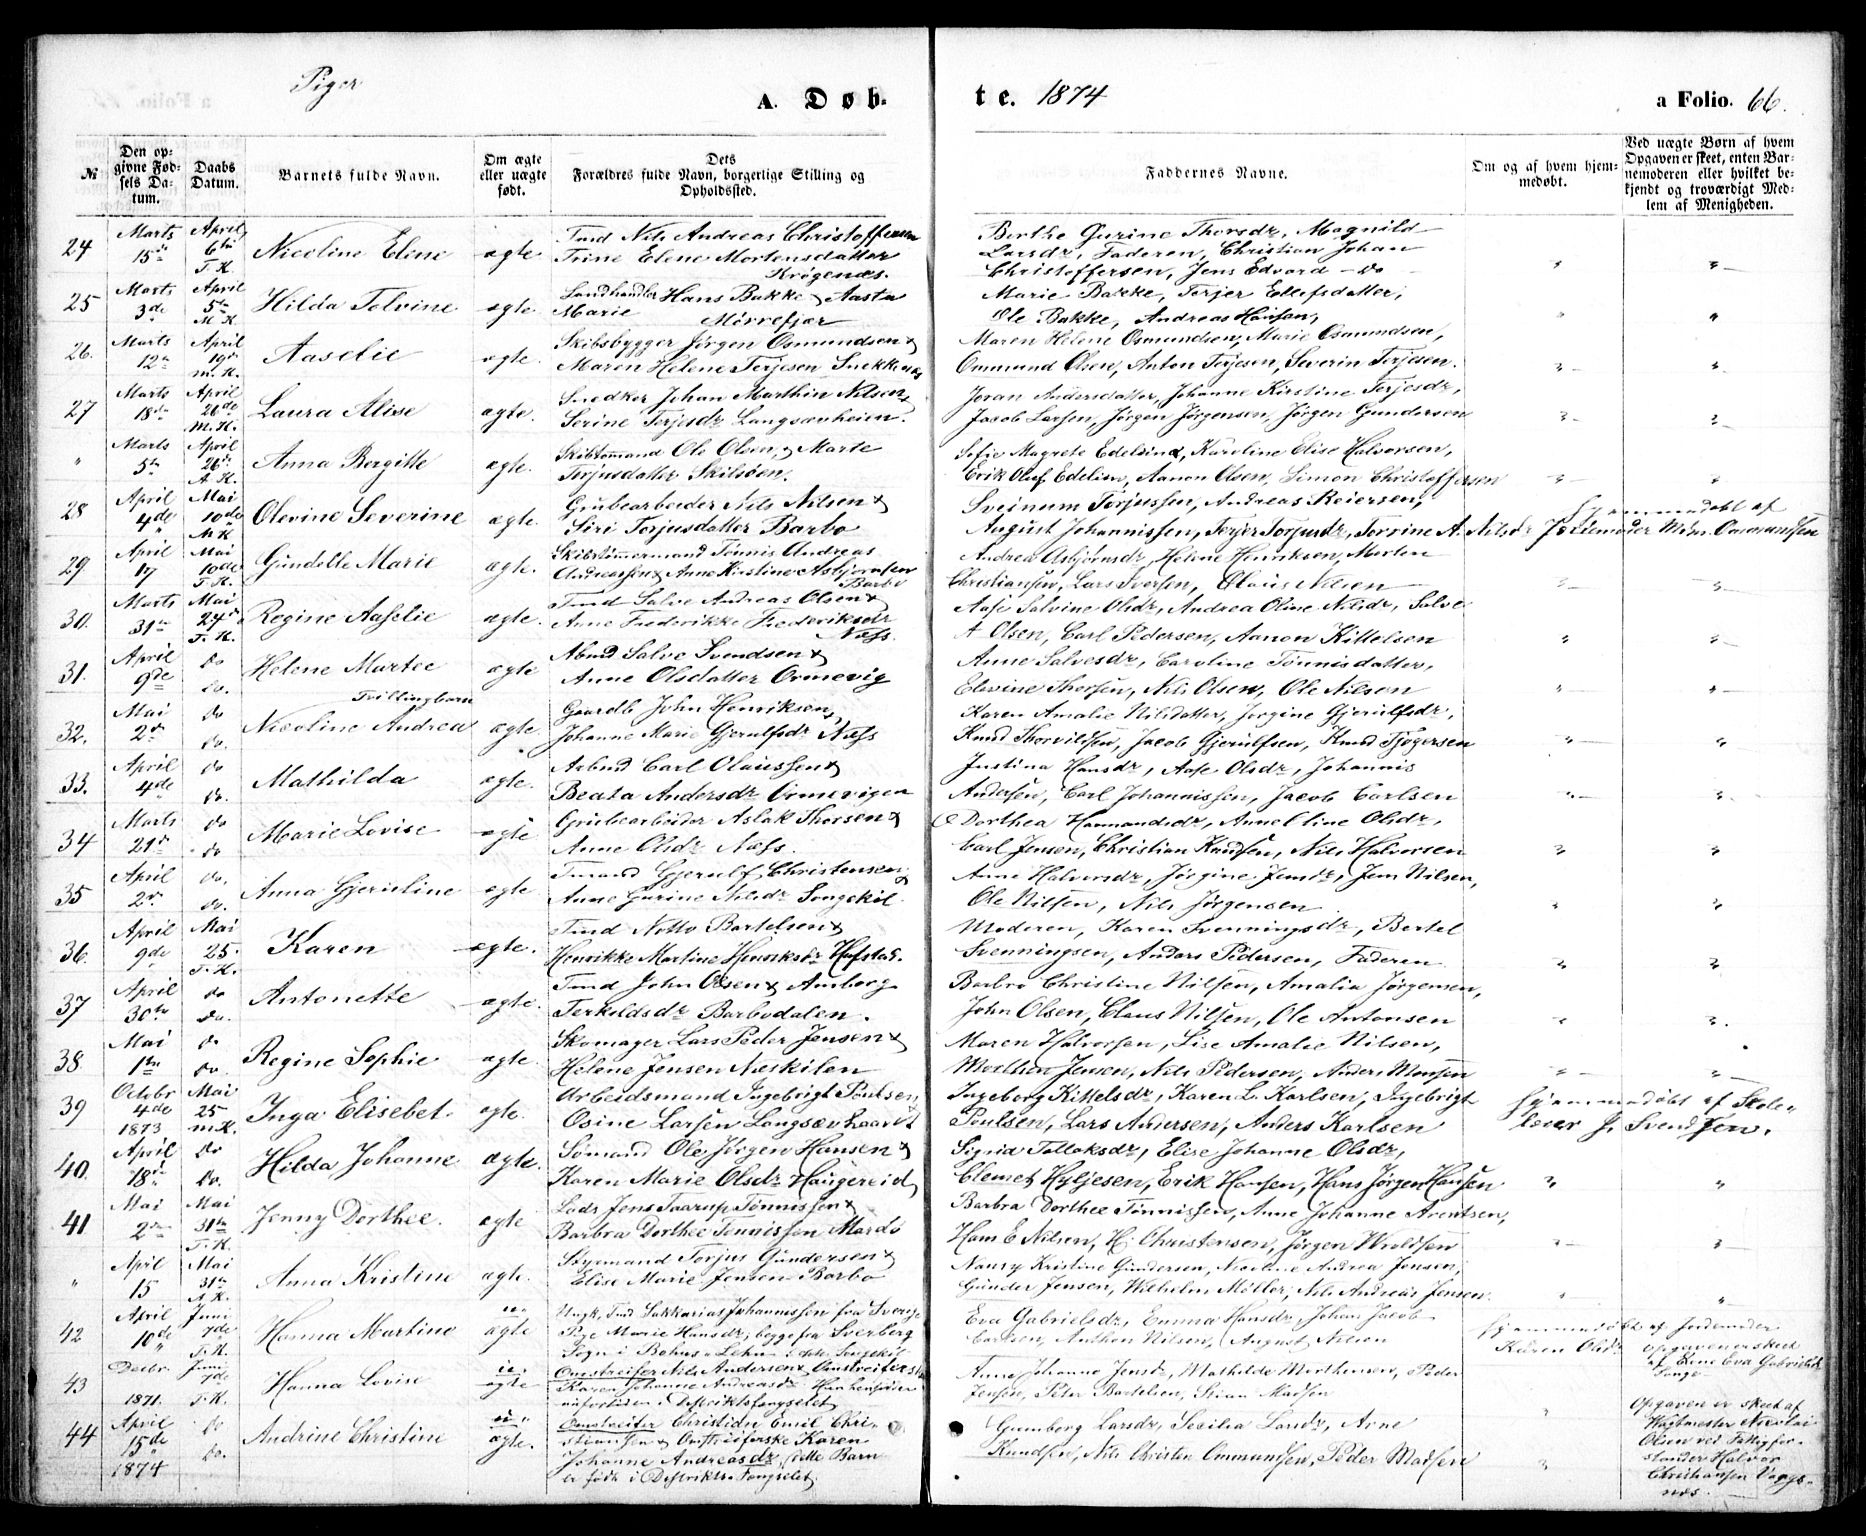 Piger
A. Døb-
te. 1874
a Folio. 66.
№
Den opgivne Fødsels Datum.
Daabs Datum.
Barnets fulde Navn.
Om ægte eller uægte født.
Dets Forældres fulde Navn, borgerlige Stilling og Opholdssted.
Faddernes Navne.
Om og af hvem hjemmedøbt.
Ved uægte Børn af hvem Opgaven er skeet, enten Barnemoderen eller hvilket bekjendt og troværdigt Medlem af Menigheden.
24 Marts 15de April 6te T. K. Nicoline Elene ægte Tmd Nils Andreas Christoffersen
Trine Elene Mortensdatter
Krøgenæs.
Berthe Gurine Thorsdr, Magnild
Larsdr, Faderen, Christian Johan
Christoffersen, Jens Edvard do
25 Marts 3de April 5te M. K. Hilda Tolvine ægte Landhandler Hans Bakke & Aasta
Marie Mørrefjær
Marie Bakke, Terjer Ellefsdatter,
Ole Bakke, Andreas Hansen,
26. Marts 12te April 19de M. K. Aaselie ægte. Skibsbygger Jørgen Osmundsen &
Maren Helene Terjesen Snekkenæs
Maren Helene Osmundsen, Marie Osmundsen,
Ommund Olsen, Anton Terjesen, Severin Terjesen.
27 Marts 18de April 26de M. K. Laura Alise ægte. Snedker Johan Marthin Nilsen &
Serine Terjesdr Langsævheien.
Joran Andersdatter, Johanne Kirstine Terjesdr,
Jacob Larsen, Jørgen Jørgensen, Jørgen Gundersen
" Marts 5te April 26de A. K. Anna Bergitte ægte. Skibtømmand Ole Olsen, & Marte
Terjusdatter Skilsøen.
Sofie Magrete Edelind, Karoline Elise Halvorsen,
Erik Oluf Edelin, Aanon Olsen, Simon Christoffersen
28 April 4de Mai 10de M. K Olevine Severine ægte. Grubearbeider Nils Nilsen &
Siri Torjusdatter Barbo
Sveinum Torjussen, Andreas Reiersen,
August Johannissen, Terjer Torjusdr, Torrine A. Nilsdr
Hjemmedøbt af
Jordemoder Mdm. Ommundsen
29 April 17 Mai 10de T. K. Gundelle Marie ægte. Skibstømmermand Tønnis Andreas
Andreassen & Anne Kirstine Asbjørnsen
Barbo
Andrea Asbjørnsdr, Helene Henriksen, Morten
Christiansen, Lars Iversen, Claus Nilsen
30. Marts 31te Mai 24de T. K. Regine Aaselie ægte. Tmd Salve Andreas Olsen &
Anne Frederikke Frederiksdr
Næss
Aase Salvine Olsdr, Andrea Oline Nilsdr, Salve
A Olsen, Carl Pedersen, Aanon Kittelsen
31. April 9de do do. Helene Martee ægte Abmd Salve Svendsen &
Anne Olsdatter Ormevig
Anne Salvesdr, Caroline Tønnisdatter,
Elevine Thorsen, Nils Olsen, Ole Nilsen
Tvillingbarn
32. Mai 2de do do. Nicoline Andrea ægte. Gaardb John Henriksen,
Johanne Marie Gjerulfsdr Næss
Karen Amalie Nilsdatter, Jorgine Gjerulfsdr,
Knud Thorvildsen, Jacob Gjerulfsen, Knud Tjøgersen
33. April 4de do do. Mathilda ægte. Arbmd Carl Olaussen &
Beata Andersdr Ormevigen
Justina Hansdr, Aase Olsdr, Johannis
Andersen, Carl Johannissen, Jacob Carlsen
34 Marts 21de do do Marie Lovise ægte Grubearbeider Aslak Thorsen &
Anne Olsdr Næss.
Dorthea Hermandsdr, Anne Eline Olsdr,
Carl Jensen, Christian Knudsen, Nils Halvorsen
35 April 2de do. do. Anna Gjeruline ægte Tmand Gjerulf Christensen &
Anne Gurine Nilsdr Songekil
Anne Halvorsdr, Jørgine Jensdr, Jens Nilsen,
Ole Nilsen, Nils Jørgensen
36. April 9de Mai 25. T. K. Karen ægte. Tmd Notto Bartelsen &
Henrikke Martine Henriksdr Hafstad.
Moderen, Karen Svenningsdr, Bertel
Svenningsen, Anders Pedersen, Faderen
37 April 30te do do. Antonette ægte. Tmd John Olsen & Aanborg
Terkildsdr Barbodalen.
Barbro Christine Nilsen, Amalia Jørgensen,
John Olsen, Claus Nilsen, Ole Antonsen
38 Mai 1te do do. Regine Sophie ægte. Skomager Lars Peder Jensen &
Helene Jensen Næskilen
Maren Halvorsen, Lise Amalie Nilsen,
Morthen Jensen, Nils Pedersen, Anders Monsen
39 Octobr 4de 1873 Mai 25 M. K. Inga Elisebet. ægte. Arbeidsmand Ingebrigt Poulsen &
Osine Larsen Langsævhaavet
Ingeborg Kittelsdr, Karen L. Karlsen, Ingebrigt
Poulsen, Lars Andersen, Anders Karlsen
Hjemmedøbt af Skole-
lærer J. Svendsen.
40. April 18de do do. Hilda Johanne ægte. Sømand Ole Jørgen Hansen &
Karen Marie Olsdr Haugereid
Sigrid Tallaksdr, Elise Johanne Olsdr,
Clemet Hyljesen, Erik Hansen, Hans Jørgen Hansen
41 Mai 2den Mai 31te T. K. Jenny Dorthee. ægte Lods Jens Taarup Tønnissen &
Barbra Dorthee Tønnissen Mardø
Barbra Dorthee Tønnissen, Anne Johanne Arentsen,
Hans E Nilsen, H. Christensen, Jørgen Wroldsen
" April 15 Mai 31te A. K. Anna Kristine ægte. Styrmand Torjus Gundersen &
Elise Marie Jensen Barbo
Nanny Kristine Gundersen, Andrea Jensen,
Gunder Jensen, Wilhelm Møller, Nils Andreas Jensen
42 April 10de Juni 7de T. K. Hanna Martine u- ægte Ungk. Tmd Sakkarias Johannessen fra Sverige
Pige Marie Hansdr, begge fra Sverberg
Sogn i Bohus Lehn
Eva Gabrielsdr, Emma Hansdr, Johan Jacob
Carlsen, Anthon Nilsen, August Nilsen
Hjemmedøbt af Jordemoder
Karen Olsdr
Opgaven er skeet
af Eva Gabrielsdr
Songe
43 Decbr. 1871. Juni 7de T. K. Hanna Lovise u- ægte Omstreifer Nils Andersen & Omstreiferske
Karen Johanne Andreasdr
i Distriktsfængselet
Anne Johanne Jensdr, Mathilde Morthensen, Peder
Jensen, Peter Bertelsen, Madsen
44 April 15de 1874 do do. Andrine Christine u- ægte. Omstreifer Christian Emil Chri-
stiansen & Omstreiferske Karen
Johanne Andreasdr, (dette Barn
er født i Distrikts-Fængselet.
Gunborg Larsdr, Secilia Landr, Arne
Knudsen, Nils Christen Ommundsen, Peder Madsen
Opgaven er skeet af
Vagtmester Nicolai
Olsen ved Fattigfor-
stander Halvor
Christiansen Vrags-
næs.